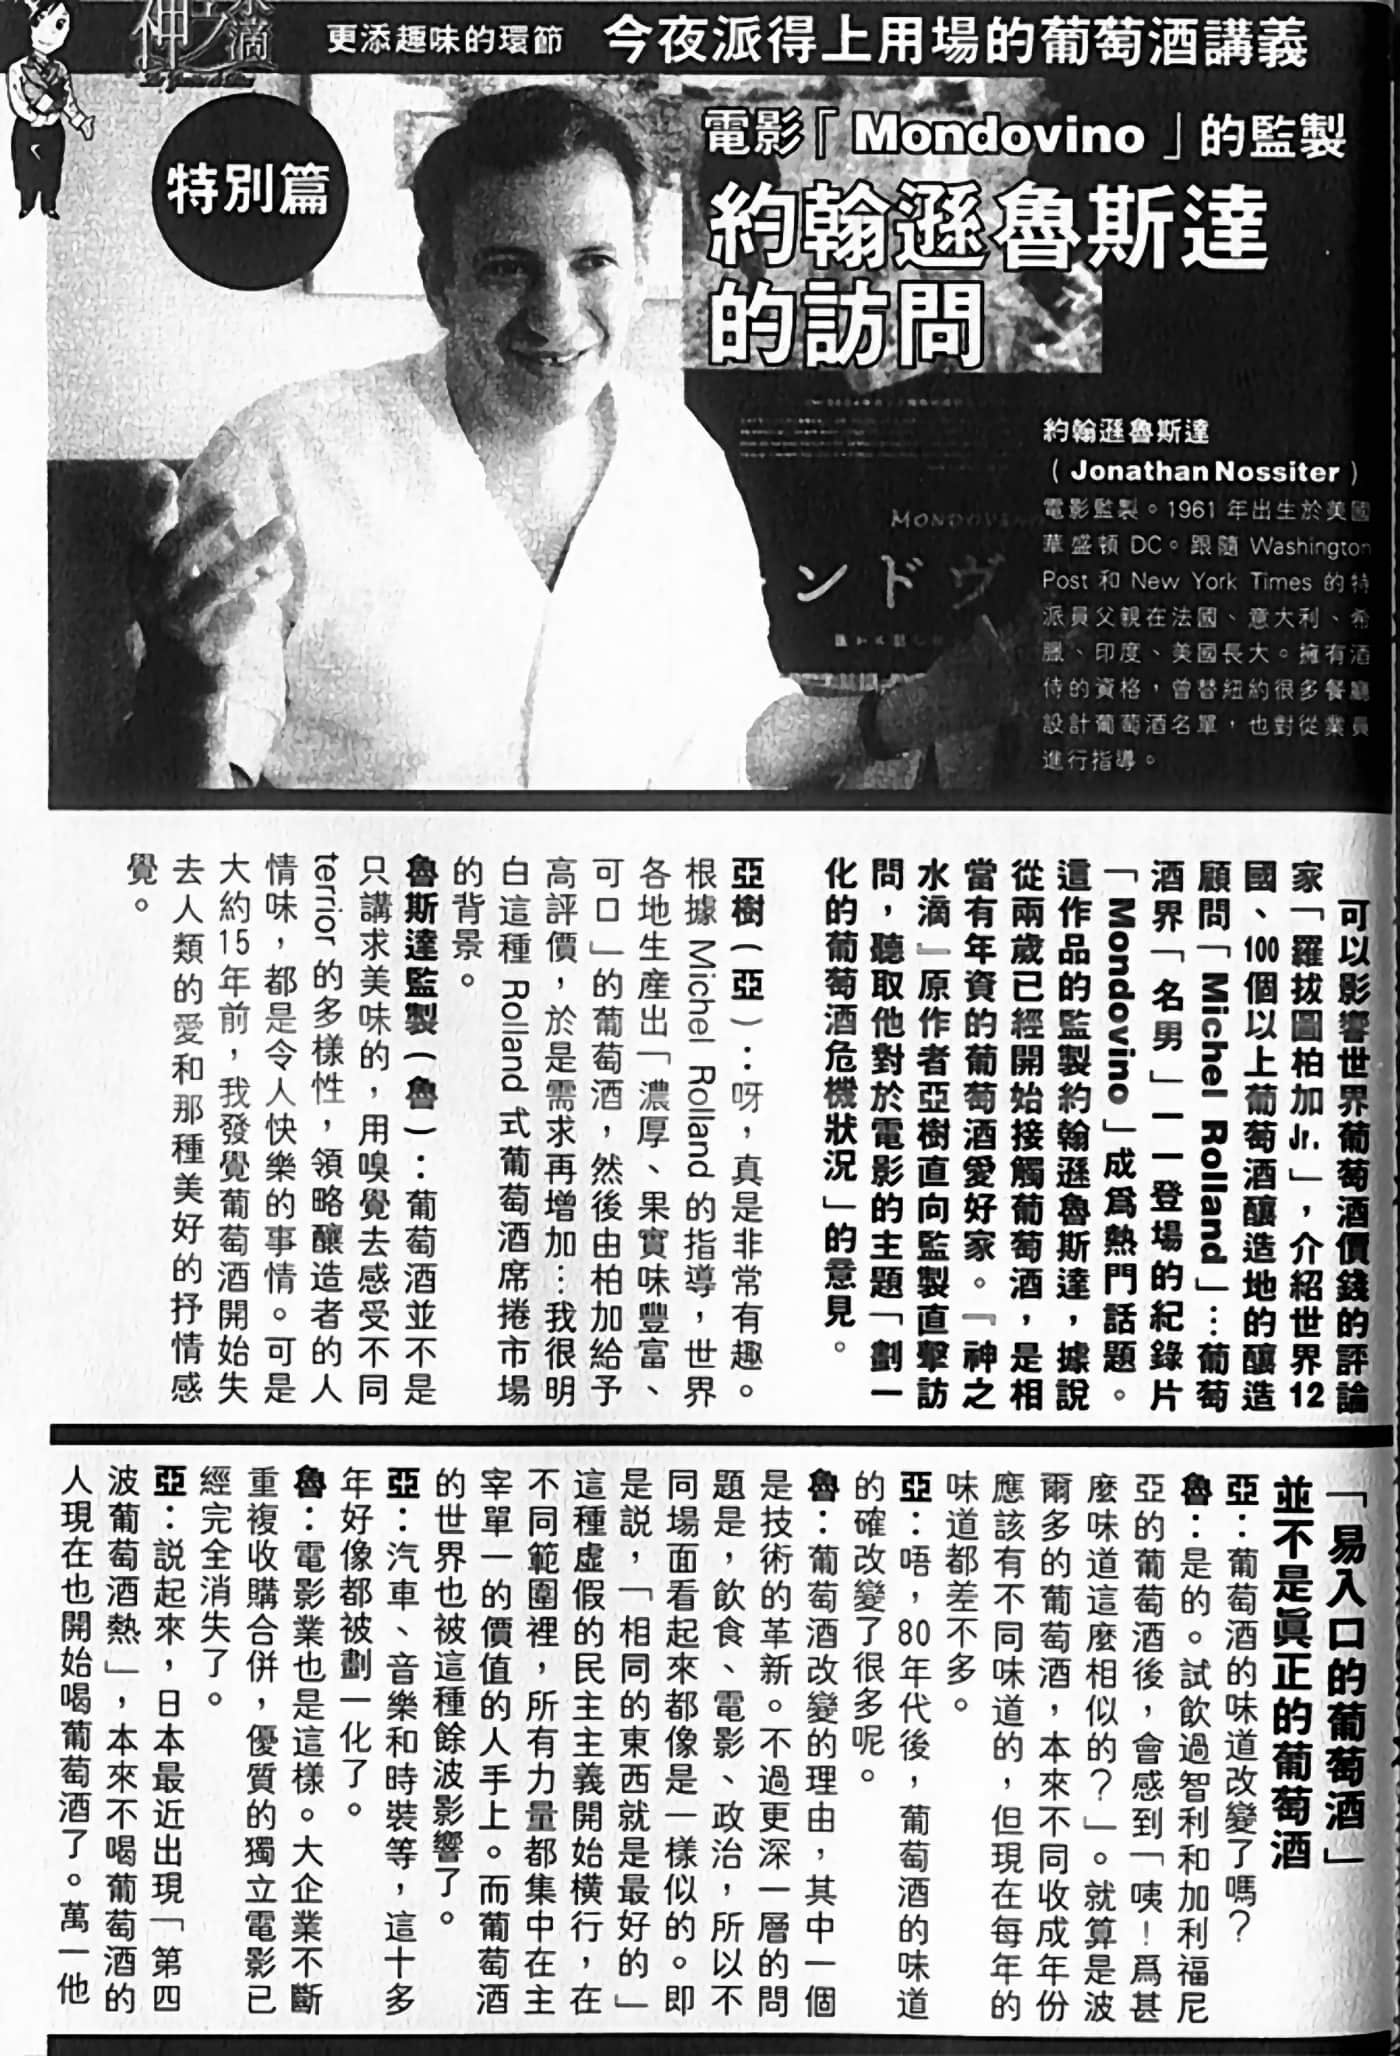 神之水滴
更添趣味的環節
今夜派得上用場的葡萄酒講義
特別篇
電影「Mondovino」的監製
約翰遜魯斯達
的訪問
MONDOVINO
ンドヴ
約翰遜魯斯達
（Jonathan Nossiter）
電影監製。1961年出生於美國
華盛頓DC。跟隨 Washington
Post 和 New York Times 的特
派員父親在法國、意大利、希
臘、印度、美國長大。擁有酒
侍的資格，曾替紐約很多餐廳
設計葡萄酒名單，也對從業員
進行指導。
可以影響世界葡萄酒價錢的評論
家「羅拔圖柏加Jr.」，介紹世界12
國、100個以上葡萄酒釀造地的釀造
顧問「Michel Rolland」…葡萄
酒界「名男」一一登場的紀錄片
「Mondovino」成爲熱門話題。
這作品的監製約翰遜魯斯達，據說
從兩歲已經開始接觸葡萄酒，是相
當有年資的葡萄酒愛好家。『神之
水滴』原作者亞樹直向監製直擊訪
問，聽取他對於電影的主題「劃一
化的葡萄酒危機狀況」的意見。
亞樹（亞）：呀，真是非常有趣。
根據 Michel Rolland 的指導，世界
各地生産出「濃厚、果實味豐富、
可口」的葡萄酒，然後由柏加給予
高評價，於是需求再增加…我很明
白這種 Rolland 式葡萄酒席捲市場
的背景。
魯斯達監製（魯）：葡萄酒並不是
只講求美味的，用嗅覺去感受不同
terrior 的多樣性，領略釀造者的人
情味，都是令人快樂的事情。可是
大約15年前，我發覺葡萄酒開始失
去人類的愛和那種美好的抒情感
覺。
「易入口的葡萄酒」
並不是真正的葡萄酒
亞：葡萄酒的味道改變了嗎？
魯：是的。試飲過智利和加利福尼
亞的葡萄酒後，會感到「咦！爲甚
麼味道這麼相似的？」。就算是波
爾多的葡萄酒，本來不同收成年份
應該有不同味道的，但現在每年的
味道都差不多。
亞：唔，80年代後，葡萄酒的味道
的確改變了很多呢。
魯：葡萄酒改變的理由，其中一個
是技術的革新。不過更深一層的問
題是，飲食、電影、政治，所以不
同場面看起來都像是一樣似的。即
是説，「相同的東西就是最好的」
這種虛假的民主主義開始橫行，在
不同範圍裡，所有力量都集中在主
宰單一的價值的人手上。而葡萄酒
的世界也被這種餘波影響了。
亞：汽車、音樂和時裝等，這十多
年好像都被劃一化了。
魯：電影業也是這樣。大企業不斷
重複收購合併，優質的獨立電影已
經完全消失了。
亞：説起來，日本最近出現「第四
波葡萄酒熱」，本來不喝葡萄酒的
人現在也開始喝葡萄酒了。萬一他